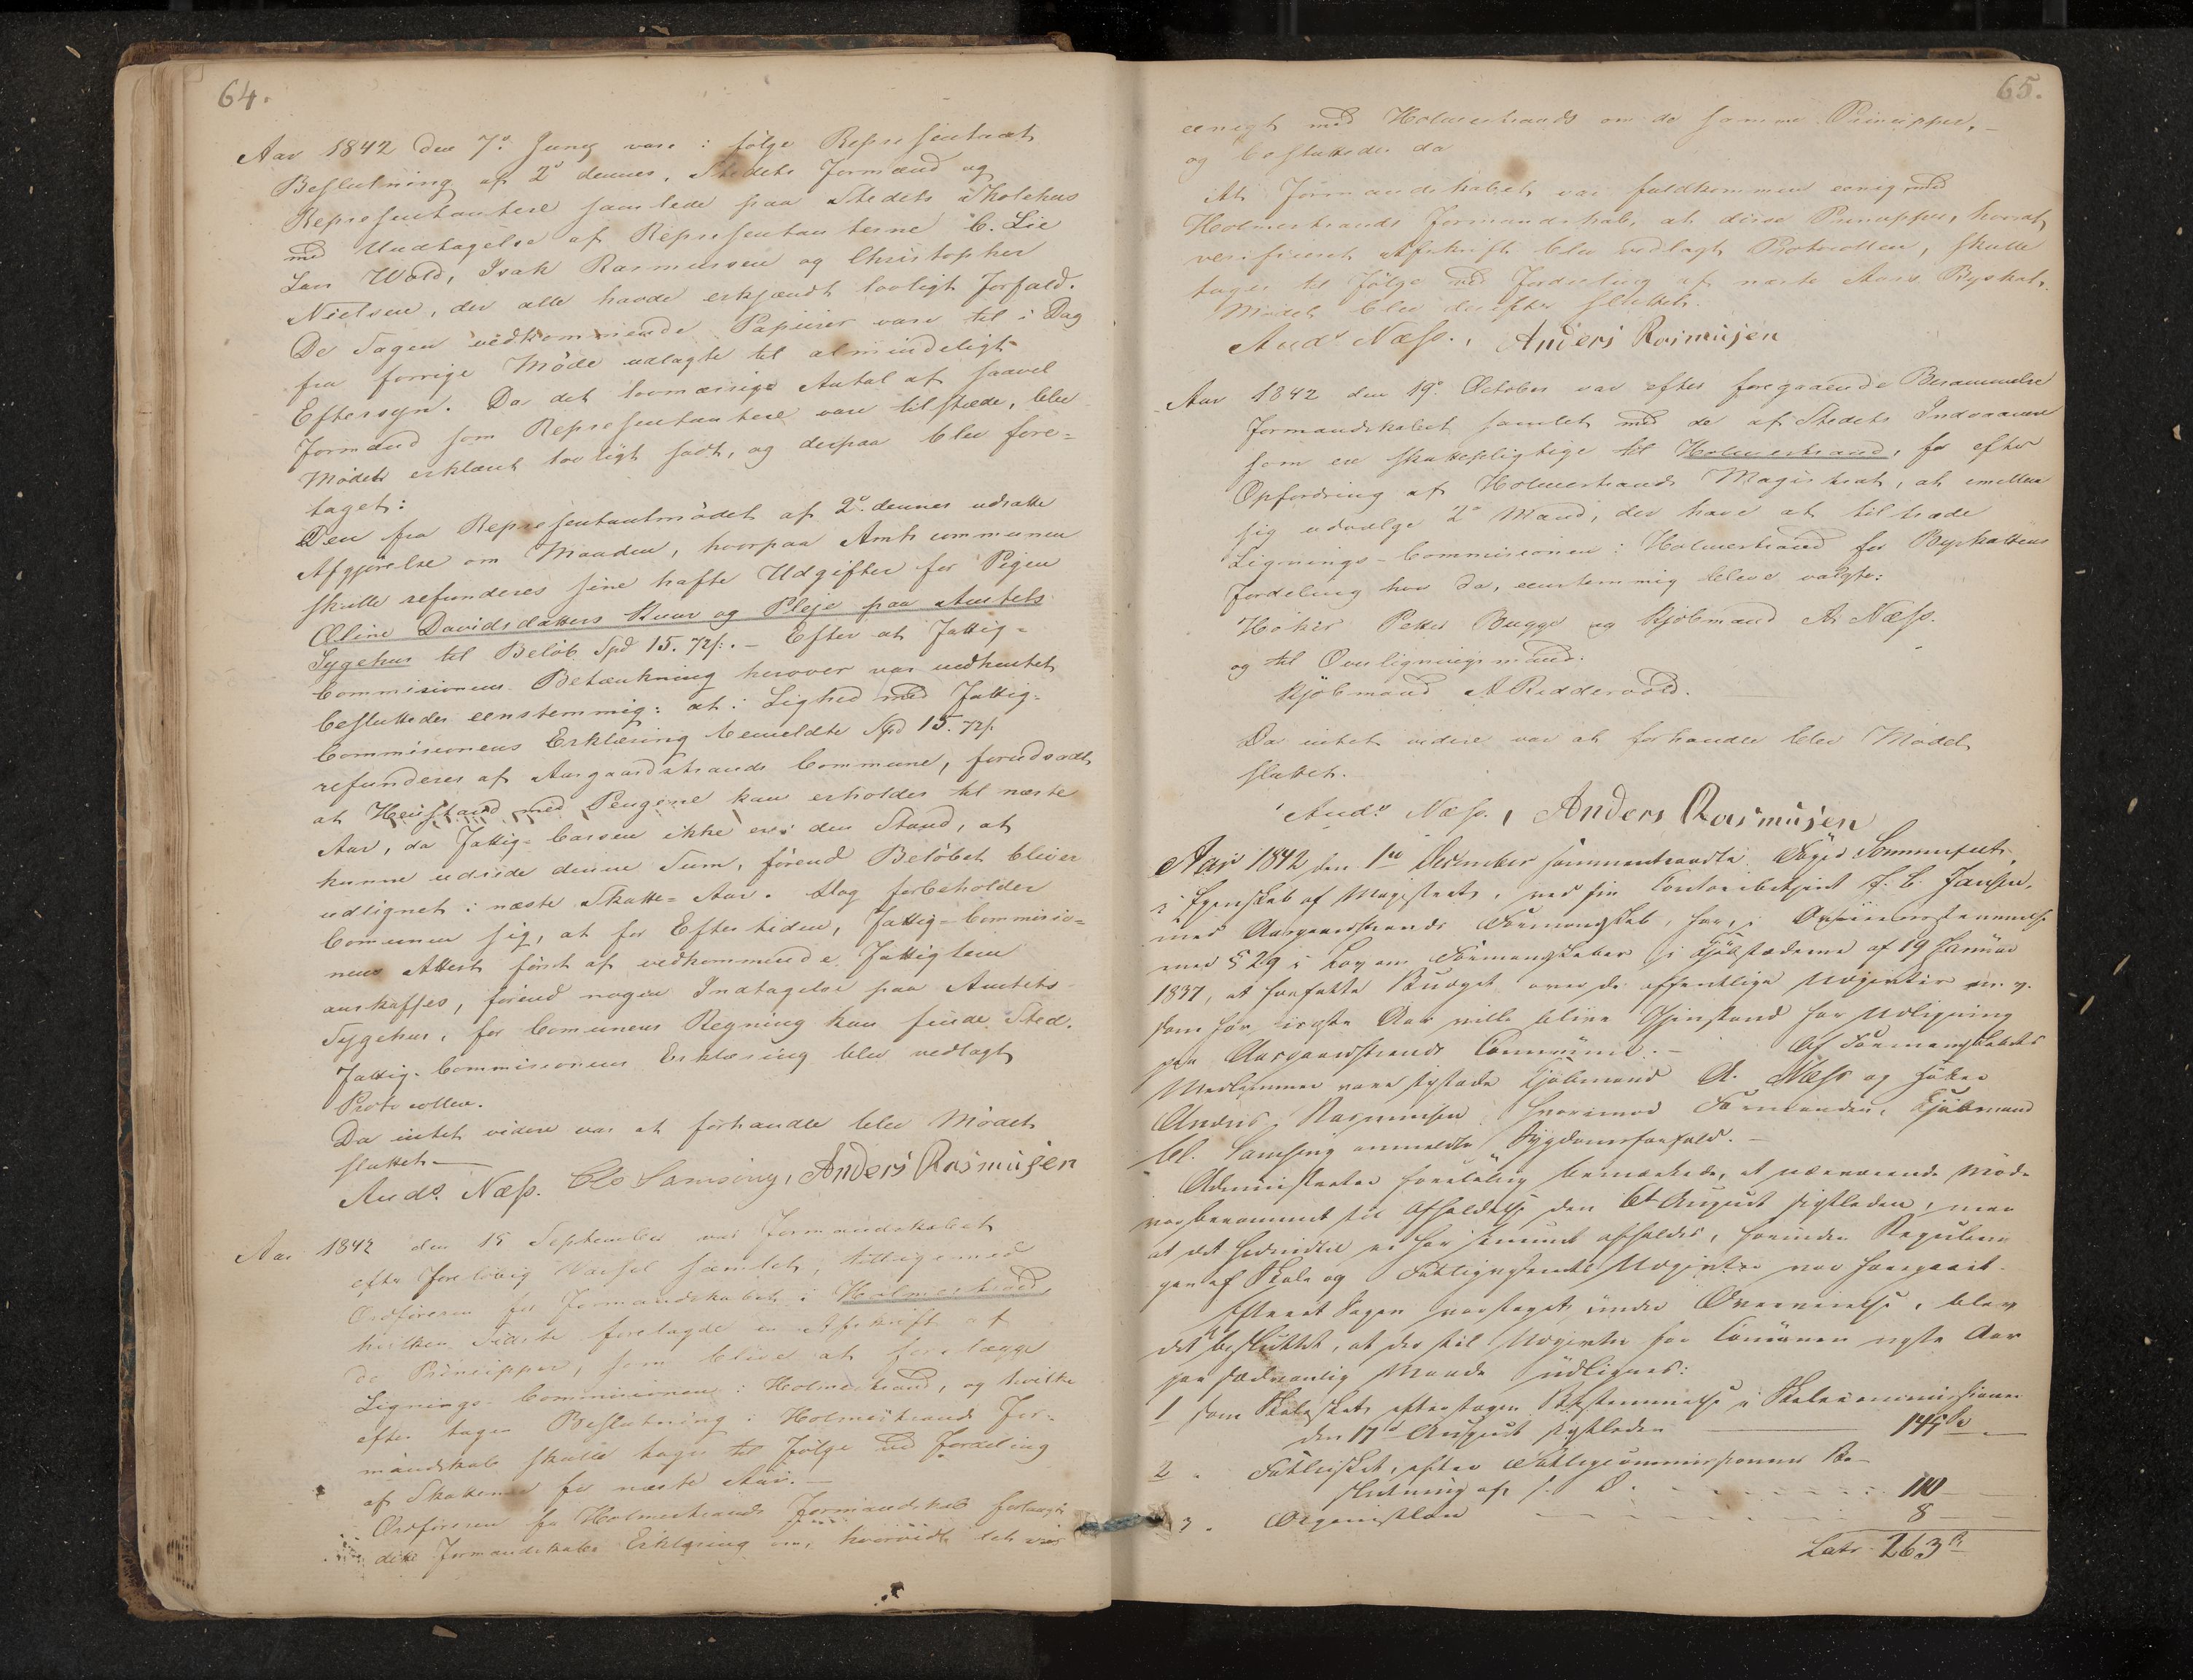 64.
Aar 1842 den 7de Juny vare i følge Repræsentant
Beslutning af 2den dennes, Stedets Formænd og
Repræsentantere samlede paa Stedets Skolehus
med Undtagelse af Repræsentanterne C. Lie
Lars Wold, Isak Rasmussen og Christopher
Nielsen, der alle havde erkjændt lovligt Forfald.
De Sagen vedkommende Papirer vare til i Dag
fra forrige Møde udlagte til almindeligt
Eftersyn. Da det lovmæssige Antal af saavel
Formænd som Repræsentantere vare tilstæde, blev
Mødet erklæret lovligt sadt, og derpaa blev fore=
taget:
Den fra Repræsentantmødet af 2den dennes udsatte
Afgjørelse om Maaden, hvorpaa Amtscommunen
skulle refunderes sine hafte Udgifter for Pigen
Oline Davidsdatters Kuur og Pleje paa Amtets
Sygehus til Beløb Spd 15. 72s. – Efter at Fattig=
Commissionens Betænkning herover var indhentet
besluttedes eenstemmig: at i Lighed med Fattig=
Commissionens Erklæring bemeldte Spd 15. 72s.
refunderes af Aasgaardstrands Commune, forudsadt
at Henstand med Pengene kan erholdes til næste
Aar, da Fattig=Cassen ikke er i den Stand, at
kunne udrede denne Sum, førend Beløbet bliver
udlignet i næste Skatte=Aar. Dog forbeholder
Communen sig, at for Eftertiden, Fattig=Commissio=
nens Attest først af vedkommende Fattiglem
anskaffes, førend nogen Indtagelse paa Amtets
Sygehus, for Communens Regning kan finde Sted.
Fattig=Commissionens Erklæring blev vedlagt
Protocollen.
Da intet videre var at forhandle blev Mødet
sluttet.
Ands. Næss. Ols Samsing, Anders Rasmusen
Aar 1842 den 15 September var Formandskabet
efter foreløbig Varsel samlet, tilligemed
Ordføreren for Formandskabet i Holmestrand,
hvilken Sidste forelagde en Afskrift af
de Principper, som blive at forelægge
Lignings-Commissionen i Holmestrand, og hvilke
efter tagen Beslutning i Holmestrands For=
mandskab skulle tages til Følge ved Fordeling
af Skatterne for næste Aar.
Ordføreren fra Holmestrands Formandskab forlangte
dette Formandskabs Erklæring om, hvorvidt det var
65.
eenigt med Holmestrands om de samme Principper, –
og besluttedes da
At Formandskabet var fuldkommen eenig med
Holmestrands Formandskab, at disse Principper, hvoraf
verificeret Afskrift blev vedlagt Protocollen, skulle
tages til Følge ved Fordeling af næste Aars Byskat.
Mødet blev derefter sluttet.
Ands Næss., Anders Rasmusen
Aar 1842 den 19de October var efter foregaaende Berammelse
Formandskabet samlet med de af Stedets Indvaanere
som ere skattepligtige til Holmestrand, for efter
Opfordring af Holmestrands Magistrat, at imellem
sig udvælge 2de Mænd, der have at tiltræde
Lignings-Commissionen i Holmestrand for Byskattens
Fordeling hvor da, eenstemmig bleve valgte:
Høker Petter Bugge og Kjøbmand A. Næss.
og til Overligningsmand:
Kjøbmand A Riddervold.
Da intet videre var at forhandle blev Mødet
sluttet.
Ands Næss., Anders Rasmusen
Aar 1842 den 1ste December sammentraadte Foged Sommerfelt,
i Egenskab af Magistrat, ved sin Contoirbetjent J. C. Jansen,
med Aasgaardstrands Formandskab, for, i Overeensstemmelse
med § 29 i Lov om Formandskaber i Kjøbstæderne af 14 Januar
1837, at forfatte Budget over de offentlige Udgivter
som for næste Aar ville blive Gjenstand for Udligning
paa Aasgaardstrands Commune. – Af Formandskabets
Medlemmer vare tilstæde Kjøbmand A. Næss og Høker
Anders Rasmusen hvorimod Formanden, Kjøbmand
Ol. Samsing anmeldte Sygdomsforfald. –
Administrator foreløbig bemærkede, at nærværende Møde
var berammet til Afholdelse den 6te August sidstleden, men
at det hedindtil ei har kunnet afholdes, forinden Regulerin
gen af Skole og Fattigvæsenets Udgivter var foregaaet.
Efterat Sagen var taget under Overveielse, blev
det besluttet, at der til Udgivter for Communen næste Aar
paa sædvanlig Maade udlignes:
1 som Skoleskat efter tagen Bestemmelse i Skolecommissionen
den 17de August sidstleden — 145 Sp —
2. Fattigskat, efter Fattigcommissionens Be-
slutning af s. D. - - - - - - 110 —
3. Organistløn - - - - - - 8 —
Latr. 263 Sp